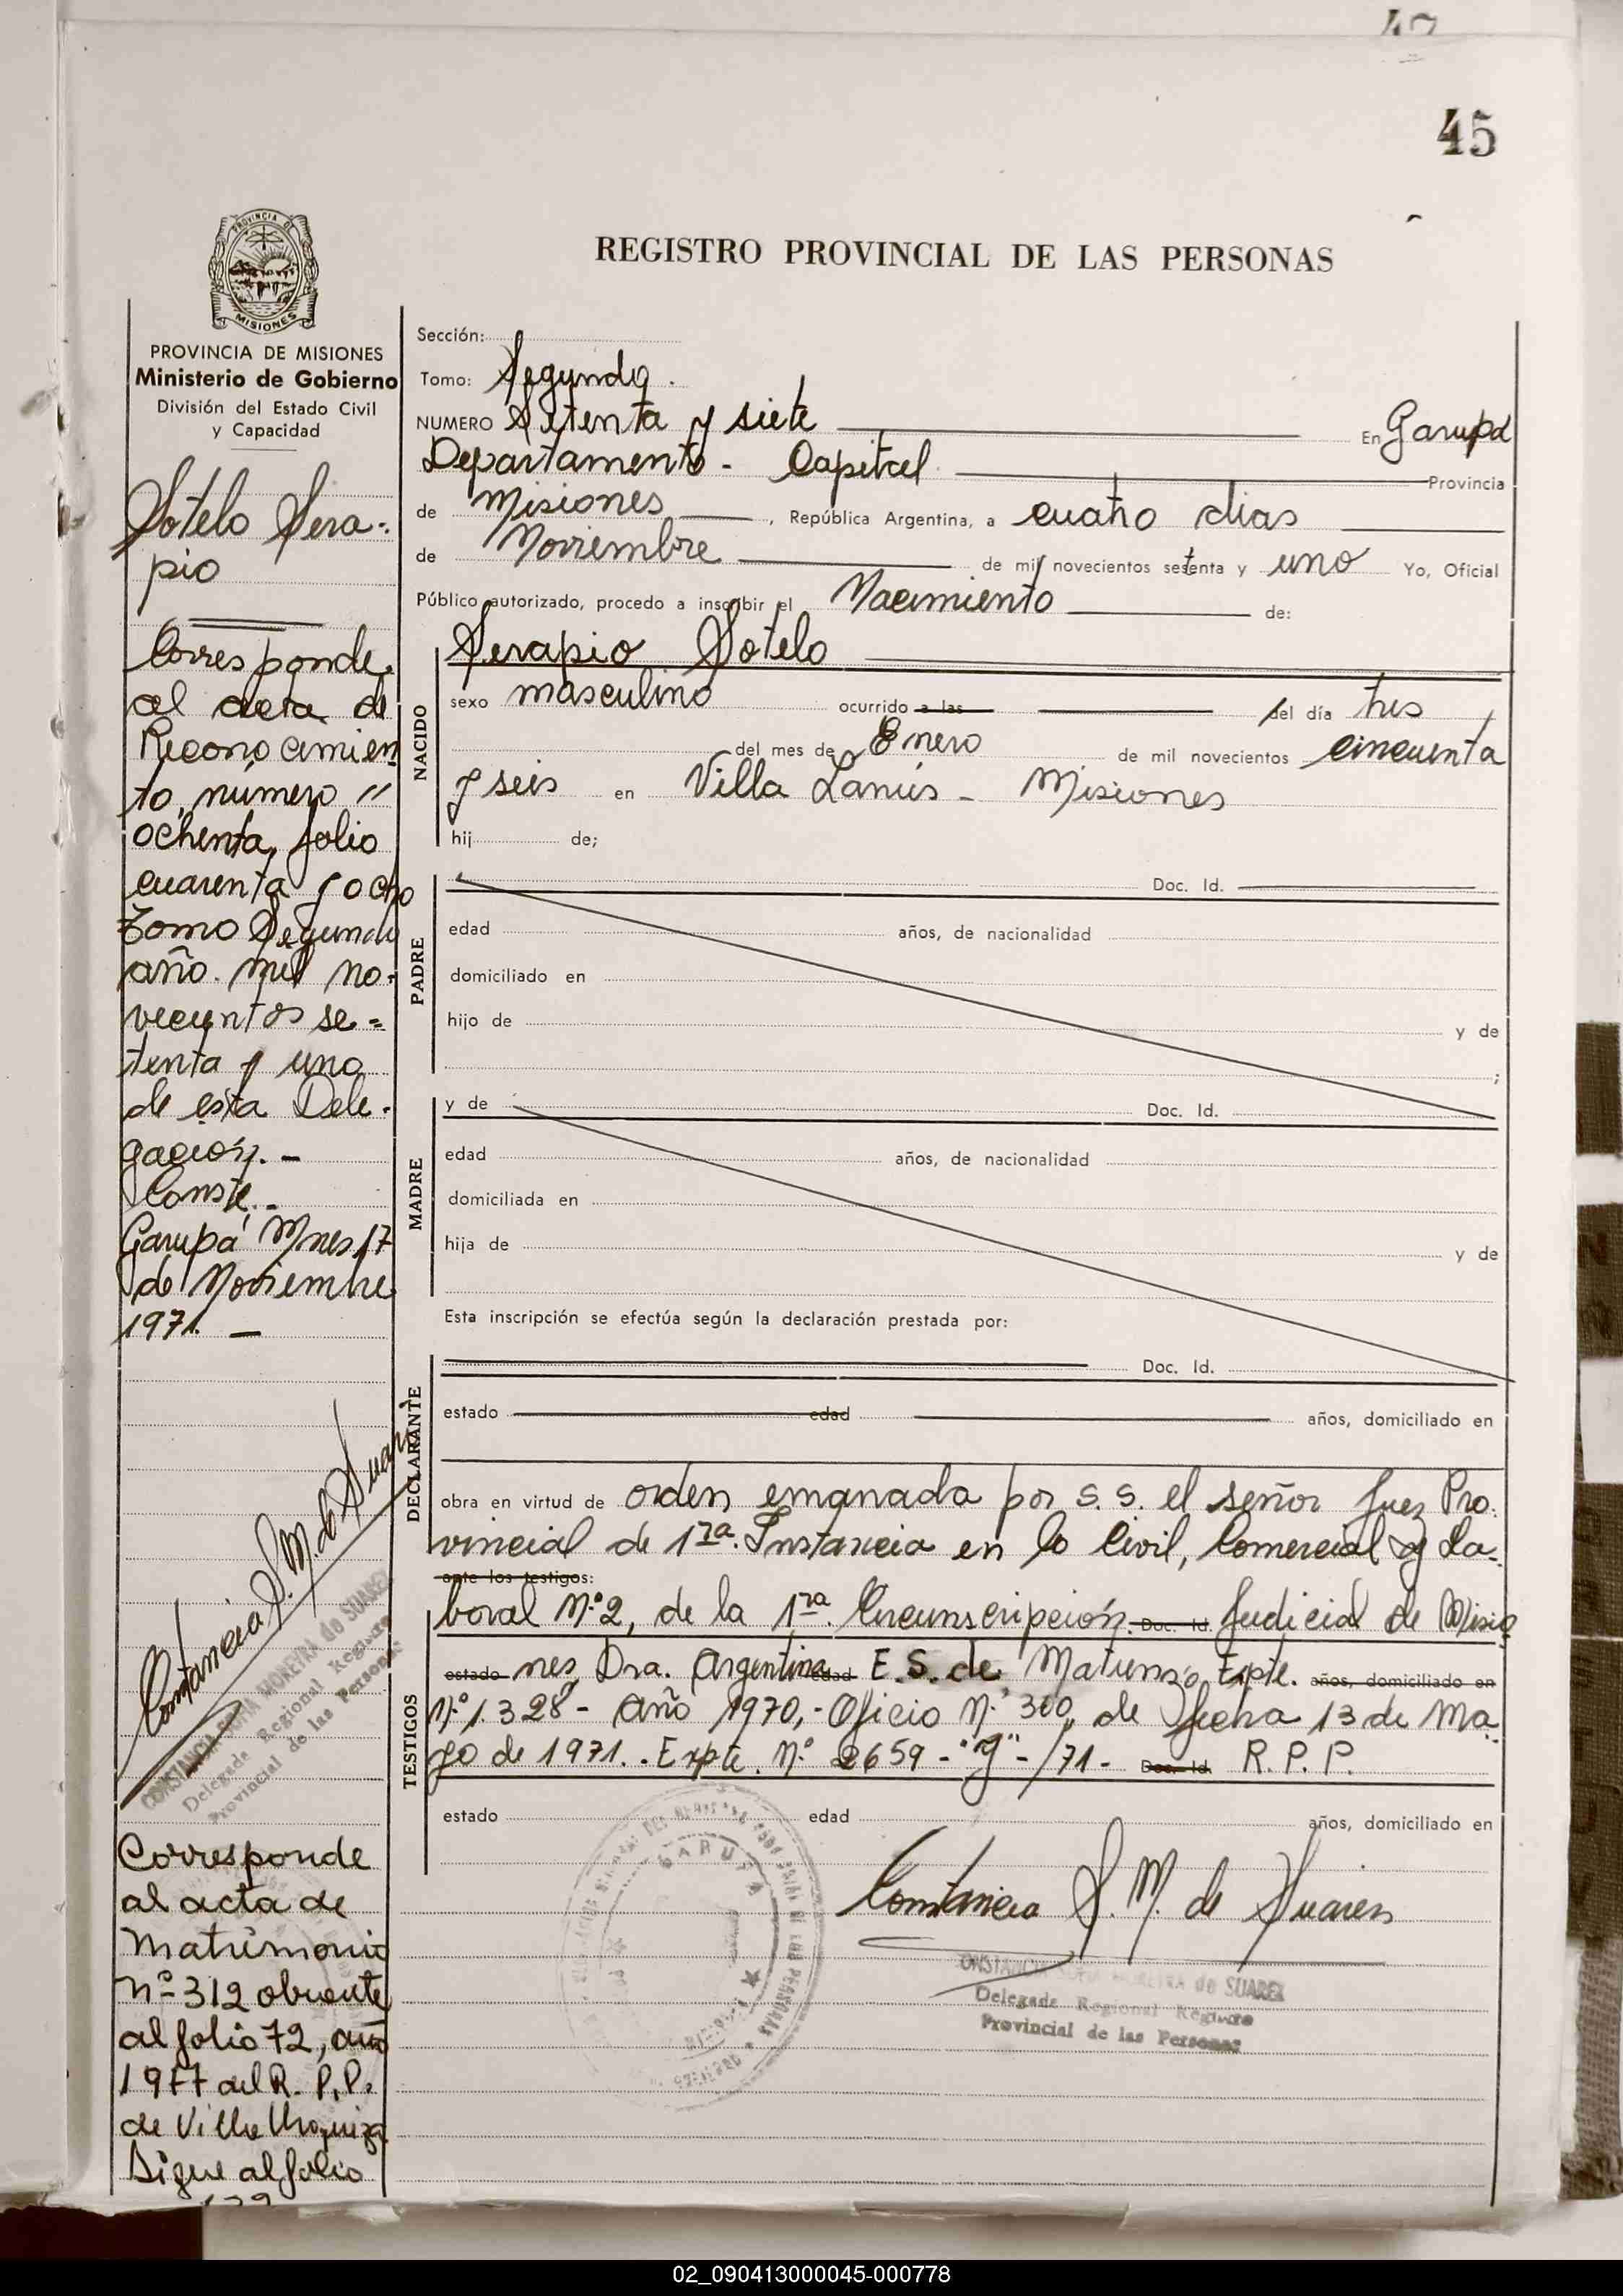 45
REGISTRO PROVINCIAL DE LAS PERSONAS
PROVINCIA DE
MISIONES
PROVINCIA DE MISIONES
Ministerio de Gobierno
División del Estado Civil
y Capacidad
Sotelo Sera-
pio
Corresponde
al acta de
Reconocimien
to, número "
ochenta, folio
cuarenta y ocho
Tomo Segundo
año. mil no-
vecientos se=
tenta y uno
de esta Dele-
gación. -
Conste. -
Garupá Mnes 17
de Noviembre
1971. -
Constancia S. M. de Suarez
CONSTANCIA SOFIA MOREYRA de SUAREZ
Delegada Regional Registro
Provincial de las Personas
Corresponde
al acta de
Matrimonio
Nº 312 obrante
al folio 72, año
1977 del R. P. P.
de Villa Urquiza
Sigue al folio
Sección:
Tomo: Segundo.
NUMERO Setenta y siete En Garupá
Departamento - Capital Provincia
de Misiones, República Argentina, a cuatro dias
de Noviembre de mil novecientos setenta y uno Yo, Oficial
Público autorizado, procedo a inscribir el Nacimiento de:
NACIDO
Serapio Sotelo
sexo masculino ocurrido a las del día tres
del mes de Enero de mil novecientos cincuenta
y seis en Villa Lanús - Misiones
hij de;
PADRE
Doc. Id.
edad años, de nacionalidad
domiciliado en
hijo de y de
;
MADRE
y de Doc. Id.
edad años, de nacionalidad
domiciliada en
hija de y de
Esta inscripción se efectúa según la declaración prestada por:
DECLARANTE
Doc. Id.
estado edad años, domiciliado en
obra en virtud de orden emanada por S. S. el señor Juez Pro-
vincial de 1ra. Instancia en lo Civil, Comercial y La-
ante los testigos:
TESTIGOS
boral Nº 2, de la 1ra. Circunscripción. Doc. Id. Judicial de Misio
estado nes, Dra. Argentina edad E. S. de Expte. años, domiciliado en
Nº 1.328 - Año 1970,- Oficio Nº 300, de fecha 13 de Ma-
yo de 1971. - Expte. Nº 2659 - "G" - /71 - Doc. Id. R. P. P.
estado edad años, domiciliado en
GARUPA
Constancia S. M. de Suarez
CONSTANCIA SOFIA MOREYRA de SUAREZ
Delegada Regional Registro
Provincial de las Personas
02_090413000045-000778